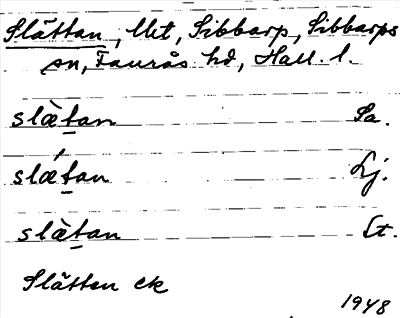 Slättan, Ut, Sibbarp, Sibbarps
sn, Faurås hd, Hall. l.
slæ̀t̠an Sa.
slǽt̠an Lj.
slæ̀t̠an Lt.
Slätten ek
1948